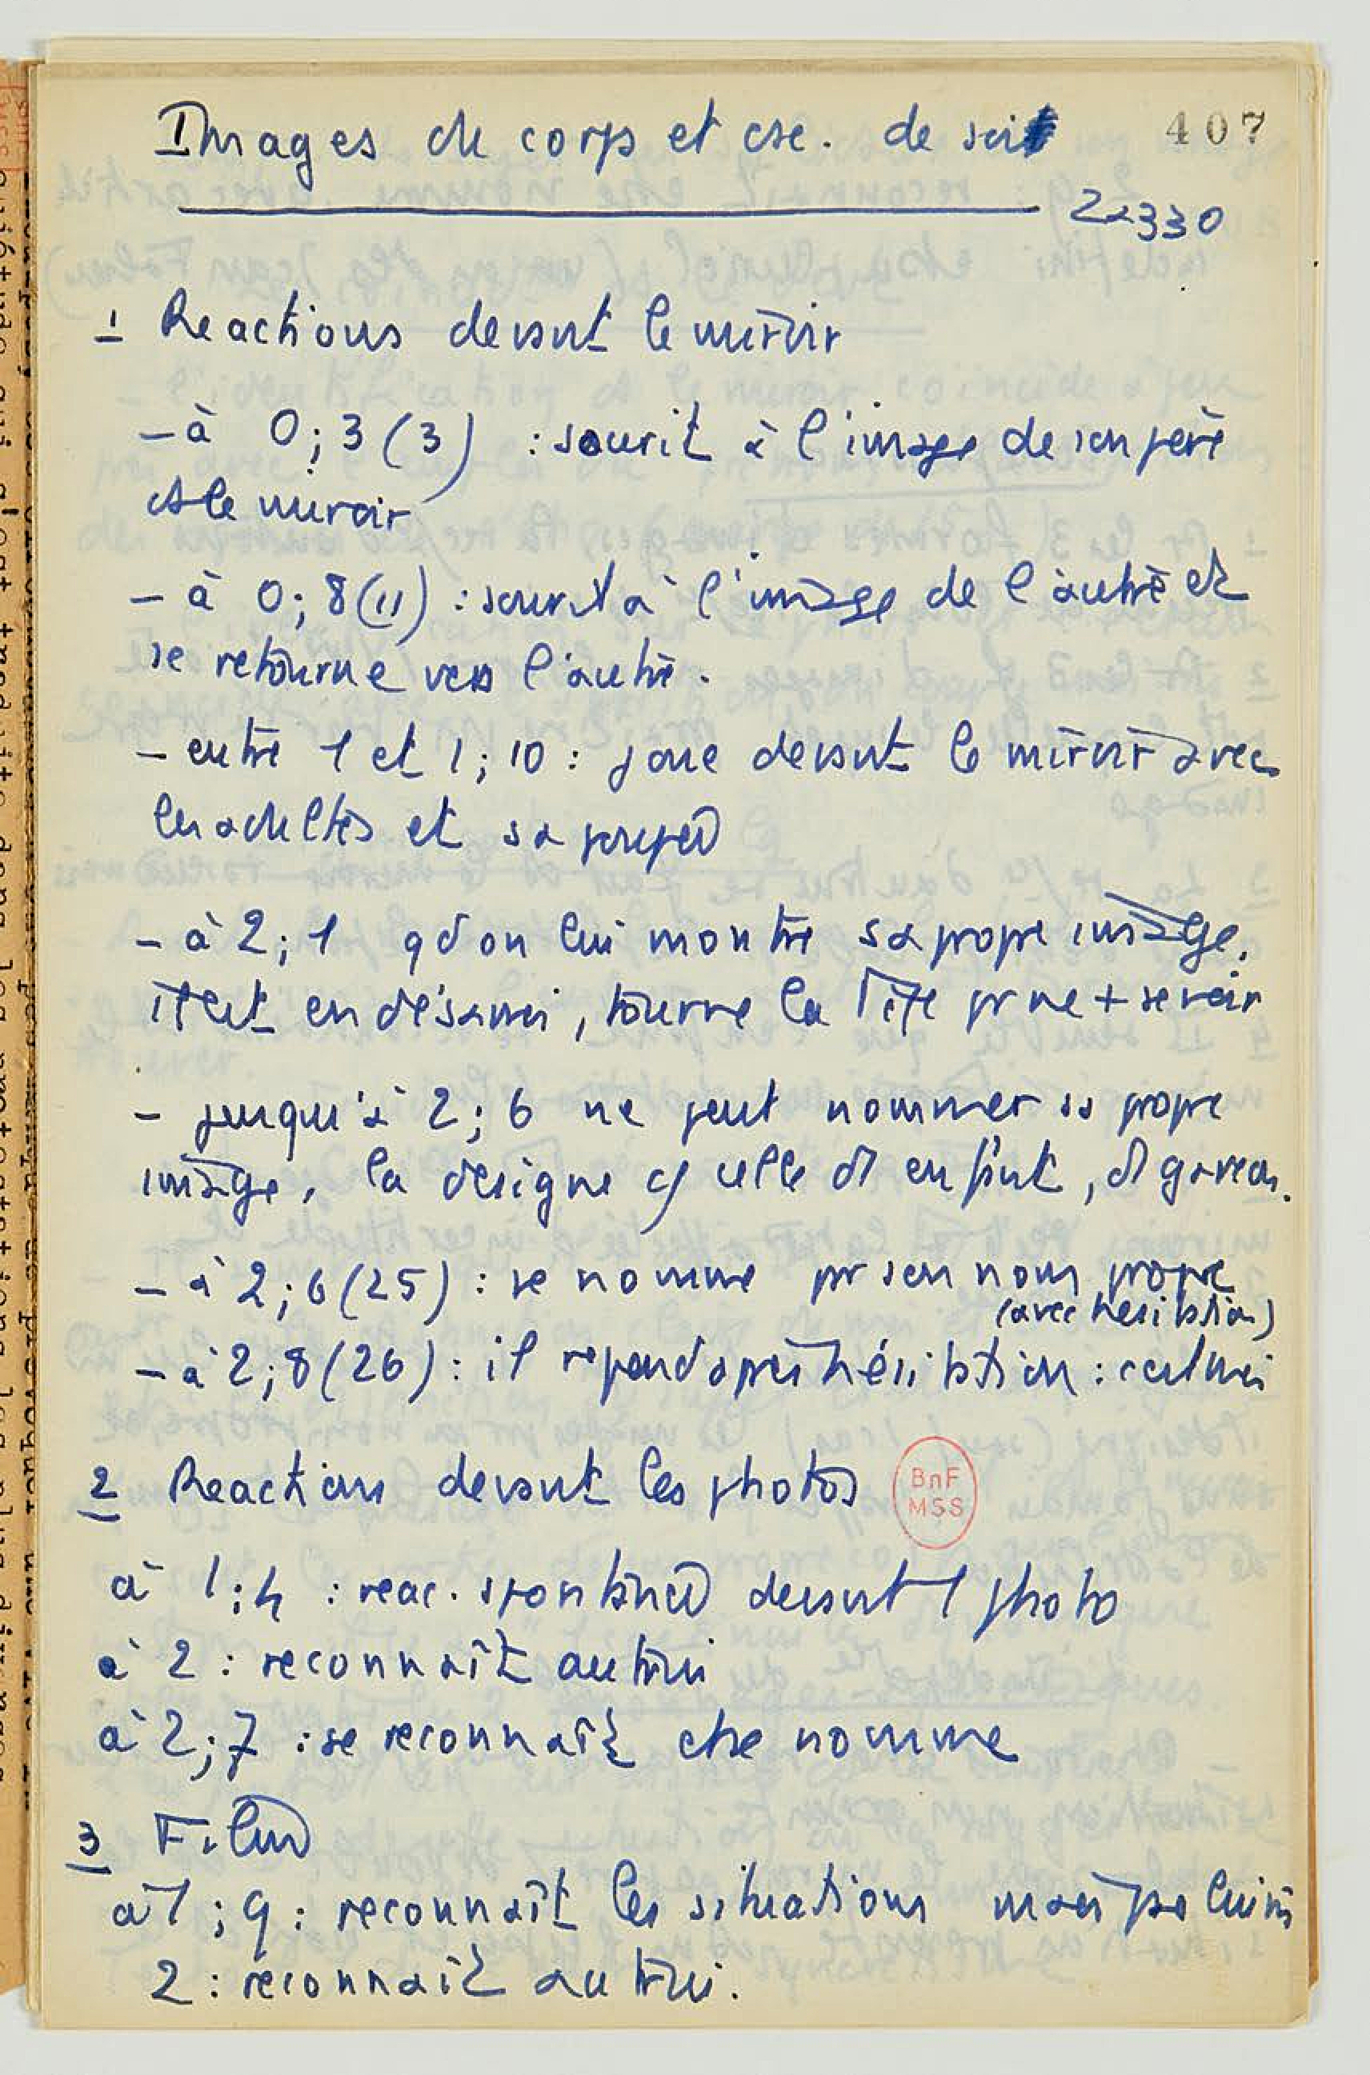 Images du corps et csc. de soi
407
22330
1 Reactions devant le miroir
- à 0; 3 (3) : sourit à l'image de son père
ds le miroir
- à 0; 8 (11) : sourit à l'image de l'autre et
se retourne vers l'autre.
- entre 1 et 1; 10 : joue devant le miroir avec
les adultes et sa poupée
- à 2; 1 qd on lui montre sa propre image,
il est en désarroi, tourne la tête pr ne + se voir
- jusqu'à 2; 6 ne peut nommer sa propre
image, la désigne c/ celle d' enfant, d' garçon.
- à 2; 6 (25) : se nomme pr son nom propre
(avec hésitation)
- à 2; 8 (26) : il repond après hésitation : c'est moi
2 Reactions devant les photos
BnF
MSS
à 1; 4 : reac. spontanée devant 1 photo
à 2 : reconnaît autrui
à 2; 7 : se reconnaît et se nomme
3 Films
à 1; 9 : reconnaît les situations mais pas lui-m
2 : reconnaît autrui.